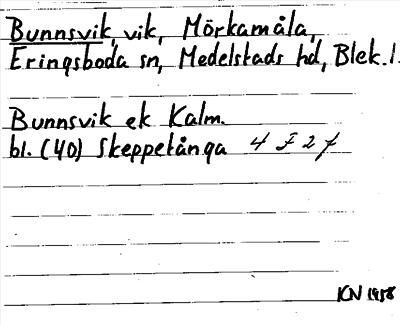 Bunnsvik, vik, Mörkamåla,
Eringsboda sn, Medelstads hd, Blek. l.
Bunnsvik ek Kalm.
bl. (40) Skeppetånga 4 F 2 f
KN 1958